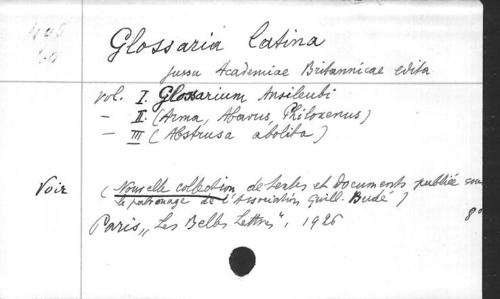 Glossaria latina
jussu Academiae Britannicae edita
vol. I. Glossarium Ansileubi
— II. (Arma, Abavus, Philoxenus)
— III (Abstrusa abolita)
Voir (Nouvelle collection de textes et documents publiée sous
le patronage de l'Association Guill. Budé)
Paris, „Les Belles Lettres", 1926 8°